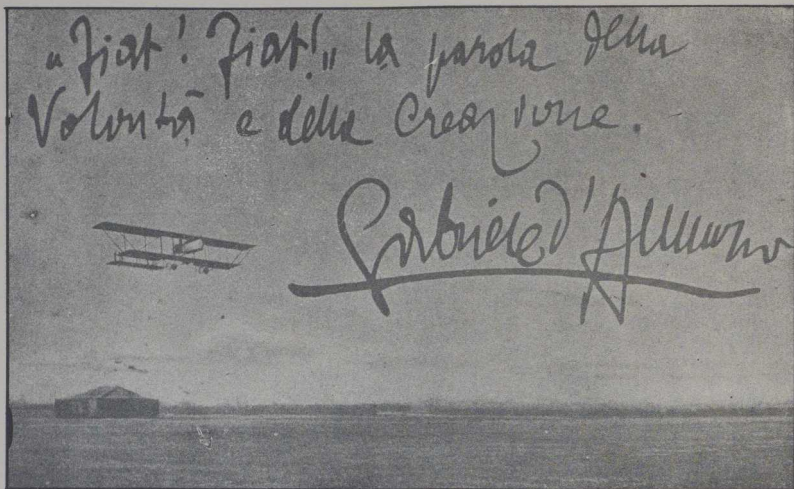 „Fiat! Fiat!„ la parola della
Volontà e della Creazione.
Gabriele d'Annunzio